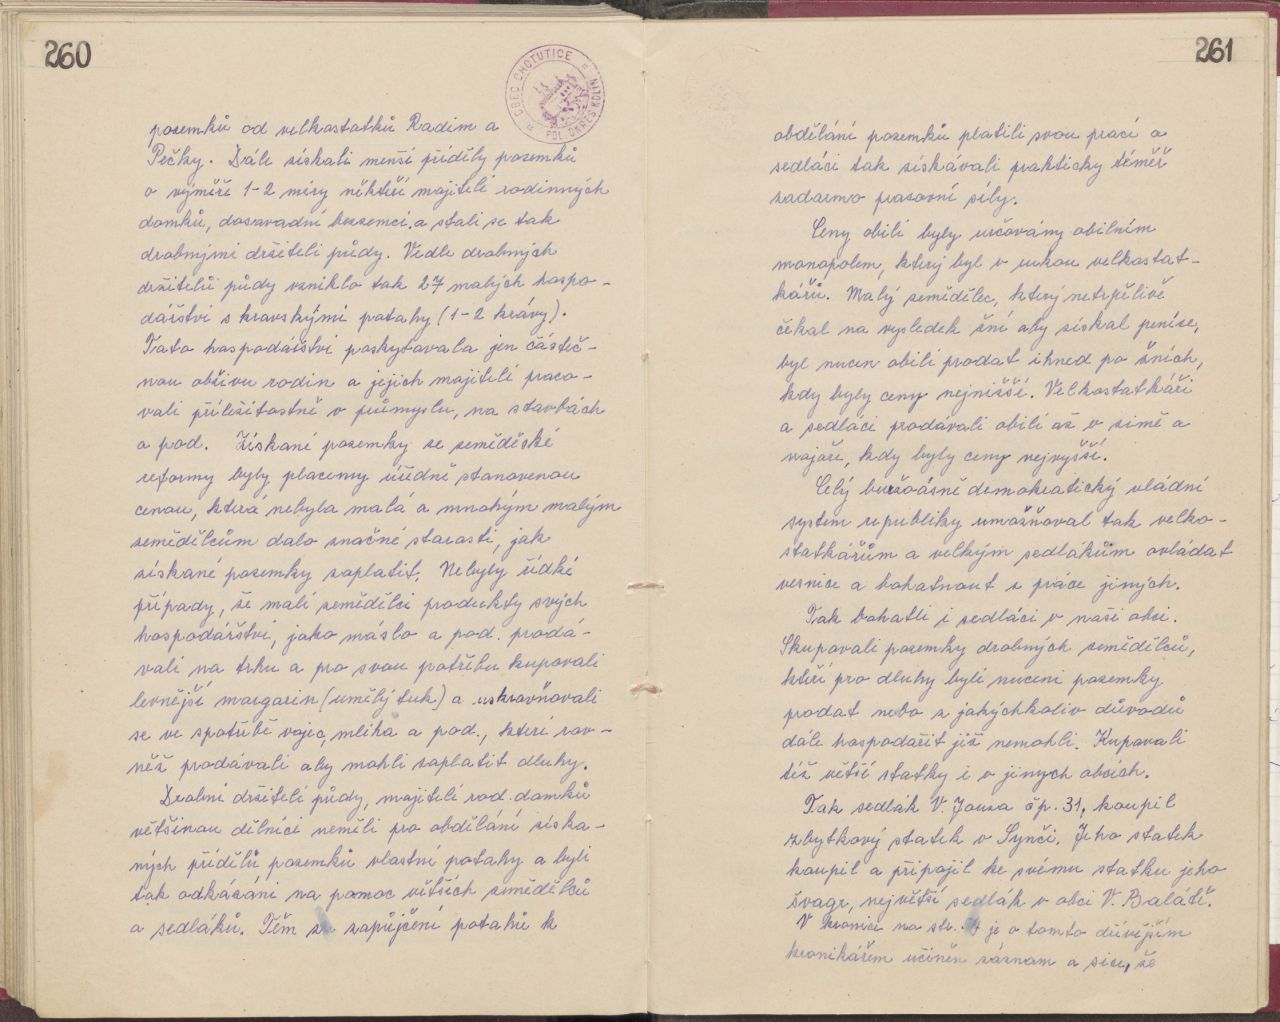 260
OBEC CHOTUTICE
POL. OKRES KOLÍN
pozemků od velkostatků Radim a
Pečky. Dále získali menší příděly pozemků
o výměře 1-2 míry někteří majitelé rodinných
domků, dosavadní bezzemci a stali se tak
drobnými držiteli půdy. Vedle drobných
držitelů půdy vzniklo tak 27 malých hospo-
dářství s kravskými potahy (1-2 krávy).
Tato hospodářství poskytovala jen částeč-
nou obživu rodin a jejich majitelé praco-
vali příležitostně v průmyslu, na stavbách
a pod. Získané pozemky ze zeměděské
reformy byly placeny úředně stanovenou
cenou, která nebyla malá a mnohým malým
zemědělcům dalo značné starosti, jak
získané pozemky zaplatit. Nebyly řídké
případy, že malí zemědělci produkty svých
hospodářství, jako máslo a pod. prodá-
vali na trhu a pro svou potřebu kupovali
levnější margarin (umělý tuk) a uskrovňovali
se ve spotřebě vajec, mléka a pod., které rov-
něž prodávali aby mohli zaplatit dluhy.
Drobní držitelé půdy, majitelé rod. domků
většinou dělníci neměli pro obdělání získa-
ných přídělů pozemků vlastní potahy a byli
tak odkázáni na pomoc větších zemědělců
a sedláků. Těm za zapůjčení potahů k
261
obdělání pozemků platili svou prací a
sedláci tak získávali prakticky téměř
zadarmo pracovní síly.
Ceny obilí byly určovány obilním
monopolem, který byl v rukou velkostat-
kářů. Malý zemědělec, který netrpělivě
čekal na vysledek žní aby získal peníze,
byl nucen obilí prodat ihned po žních,
kdy byly ceny nejnižší. Velkostatkáři
a sedláci prodávali obilí až v zimě a
najaře, kdy byly ceny nejvyšší.
Celý buržoásně demokratický vládní
system republiky umožňoval tak velko-
statkářům a velkým sedlákům ovládat
vesnice a bohatnout z práce jiných.
Tak bohatli i sedláci v naší obci.
Skupovali pozemky drobných zemědělců,
kteří pro dluhy byli nuceni pozemky
prodat nebo z jakýchkoliv důvodů
dále hospodařit již nemohli. Kupovali
též větší statky i v jiných obcích.
Tak sedlák V. Jouza čp. 31, koupil
zbytkový statek v Synči. Jeho statek
koupil a připojil ke svému statku jeho
švagr, největší sedlák v obci V. Baláže.
V kronice na str. je o tomto dřívějším
kronikářem učiněn záznam a sice, že